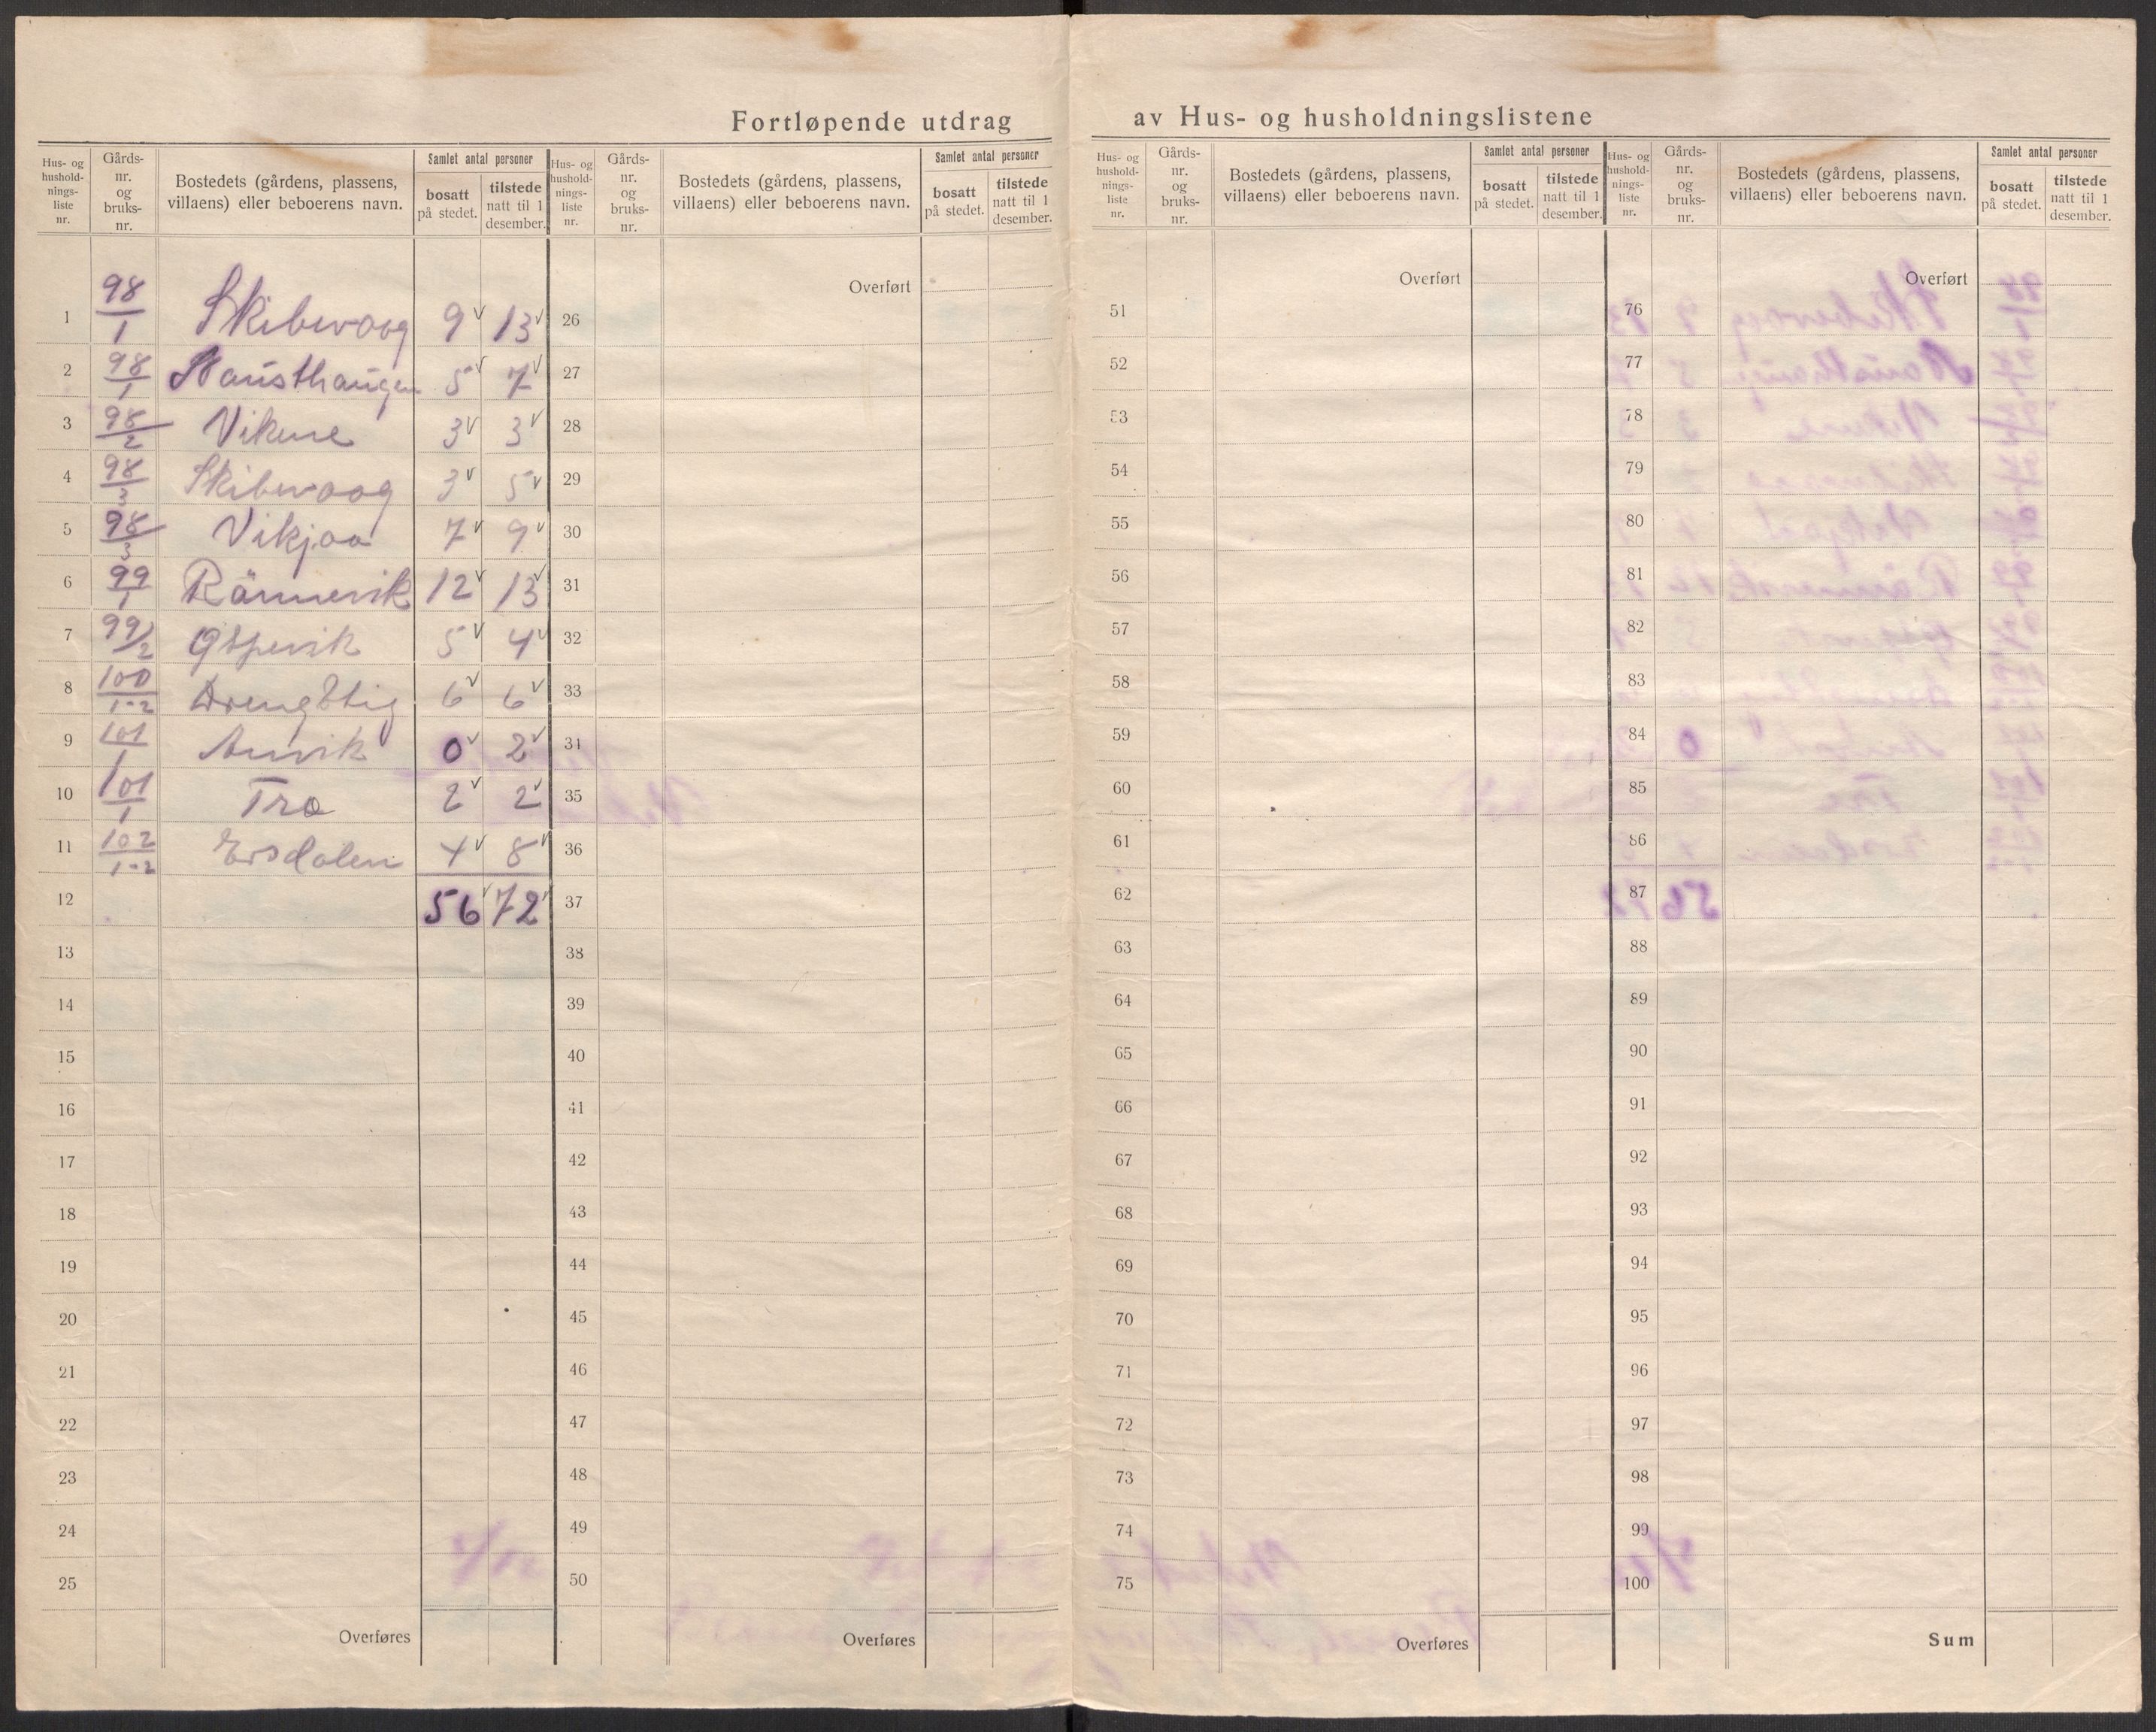 Fortløpende utdrag av Hus- og husholdningslistene
Hus- og hushold-nings-liste nr. | Gårds-nr. og bruks-nr. | Bostedets (gårdens, plassens, villaens) eller beboerens navn. | Samlet antal personer | bosatt på stedet. | tilstede natt til 1 desember.
Hus- og hushold-nings-liste nr. | Gårds-nr. og bruks-nr. | Bostedets (gårdens, plassens, villaens) eller beboerens navn. | Samlet antal personer | bosatt på stedet. | tilstede natt til 1 desember.
Hus- og hushold-nings-liste nr. | Gårds-nr. og bruks-nr. | Bostedets (gårdens, plassens, villaens) eller beboerens navn. | Samlet antal personer | bosatt på stedet. | tilstede natt til 1 desember.
Hus- og hushold-nings-liste nr. | Gårds-nr. og bruks-nr. | Bostedets (gårdens, plassens, villaens) eller beboerens navn. | Samlet antal personer | bosatt på stedet. | tilstede natt til 1 desember.
1 98/1 Skibevaag 9 13
2 98/1 Nausthaugen 5 7
3 98/2 Vikene 3 3
4 98/3 Skibevaag 3 5
5 98/3 Vikjaa 7 9
6 99/1 Rännevik 12 13
7 99/2 Ospevik 5 4
8 100/1-2 Drengstig 6 6
9 101/1 Anvik 0 2
10 101/1 Træ 2 2
11 102/1-2 Ersdalen 4 8
12 56 72
13
14
15
16
17
18
19
20
21
22
23
24
25
Overføres
Overført
26
27
28
29
30
31
32
33
34
35
36
37
38
39
40
41
42
43
44
45
46
47
48
49
50
Overføres
Overført
51
52
53
54
55
56
57
58
59
60
61
62
63
64
65
66
67
68
69
70
71
72
73
74
75
Overføres
Overført
76
77
78
79
80
81
82
83
84
85
86
87
88
89
90
91
92
93
94
95
96
97
98
99
100
Sum